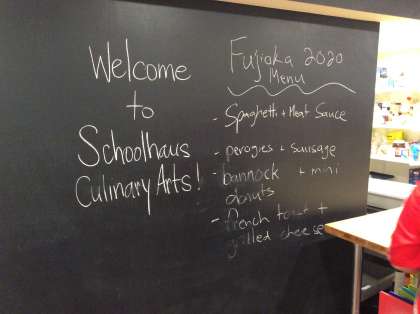 Welcome
to
Schoolhaus
Culinary Arts!
Fujioka 2020
Menu
- Spaghetti + Meat Sauce
- perogies + sausage
- bannock + mini
donuts
- french toast +
grilled cheese